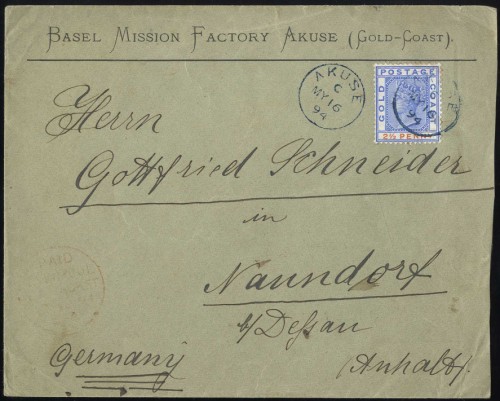 BASEL MISSION FACTORY AKUSE (GOLD-COAST).
AKUSE
C
MY 16
94
POSTAGE
GOLD
COAST
2½ PENNY
Herrn
Gottfried Schneider
in
Naundorf
b/Dessau
Germany
(Anhalt).